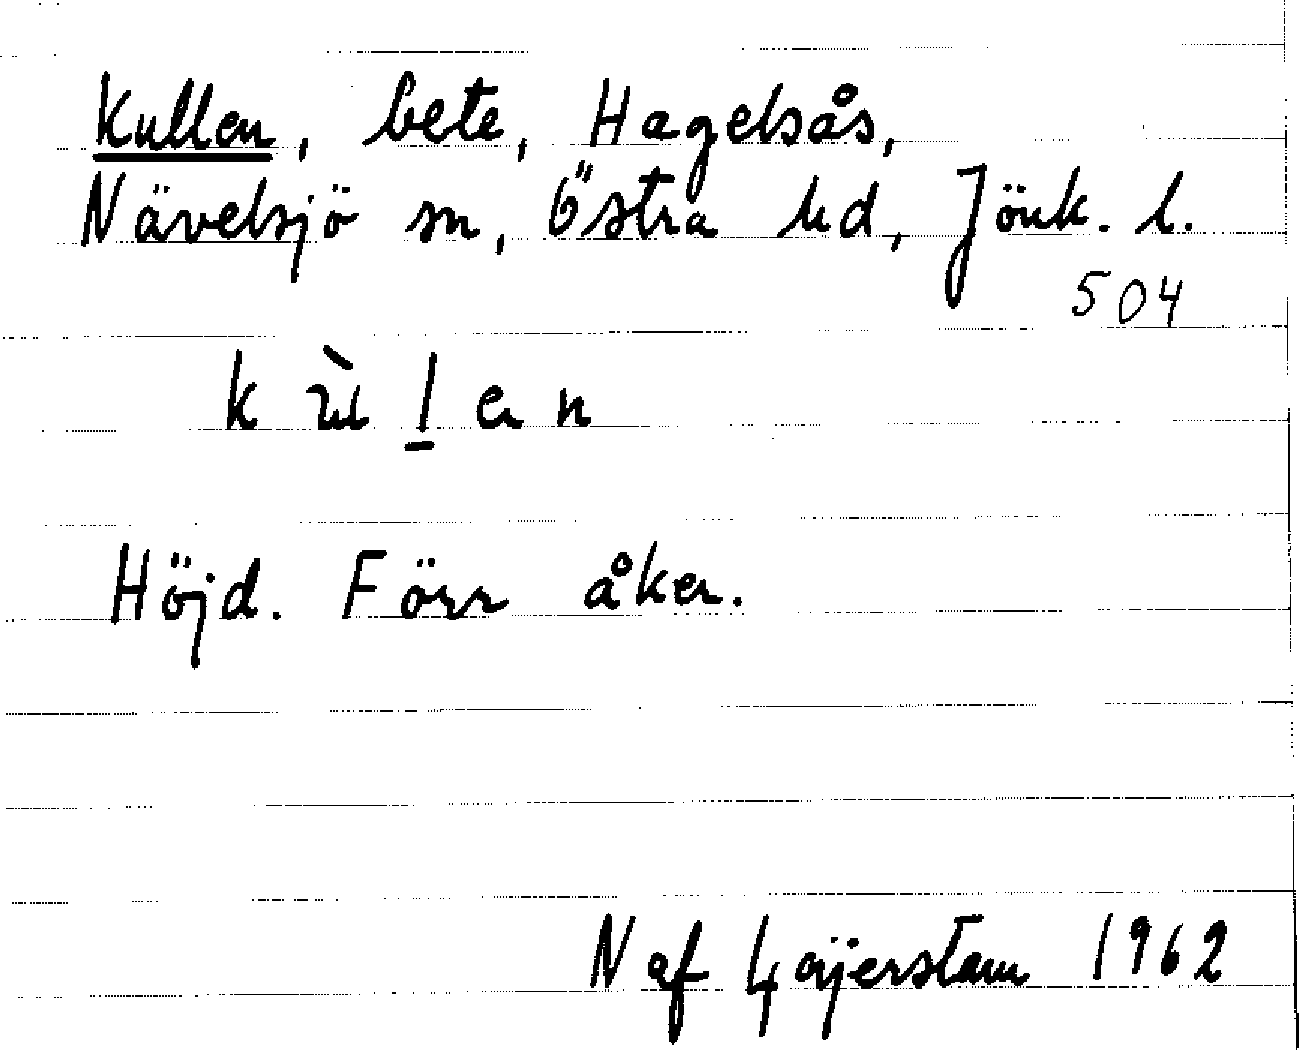 Kullen, bete, Hagelsås,
Nävelsjö sn, Östra hd, Jönk. l.
504
k ù l e n
Höjd. Förr åker.
N af Geijerstam 1962